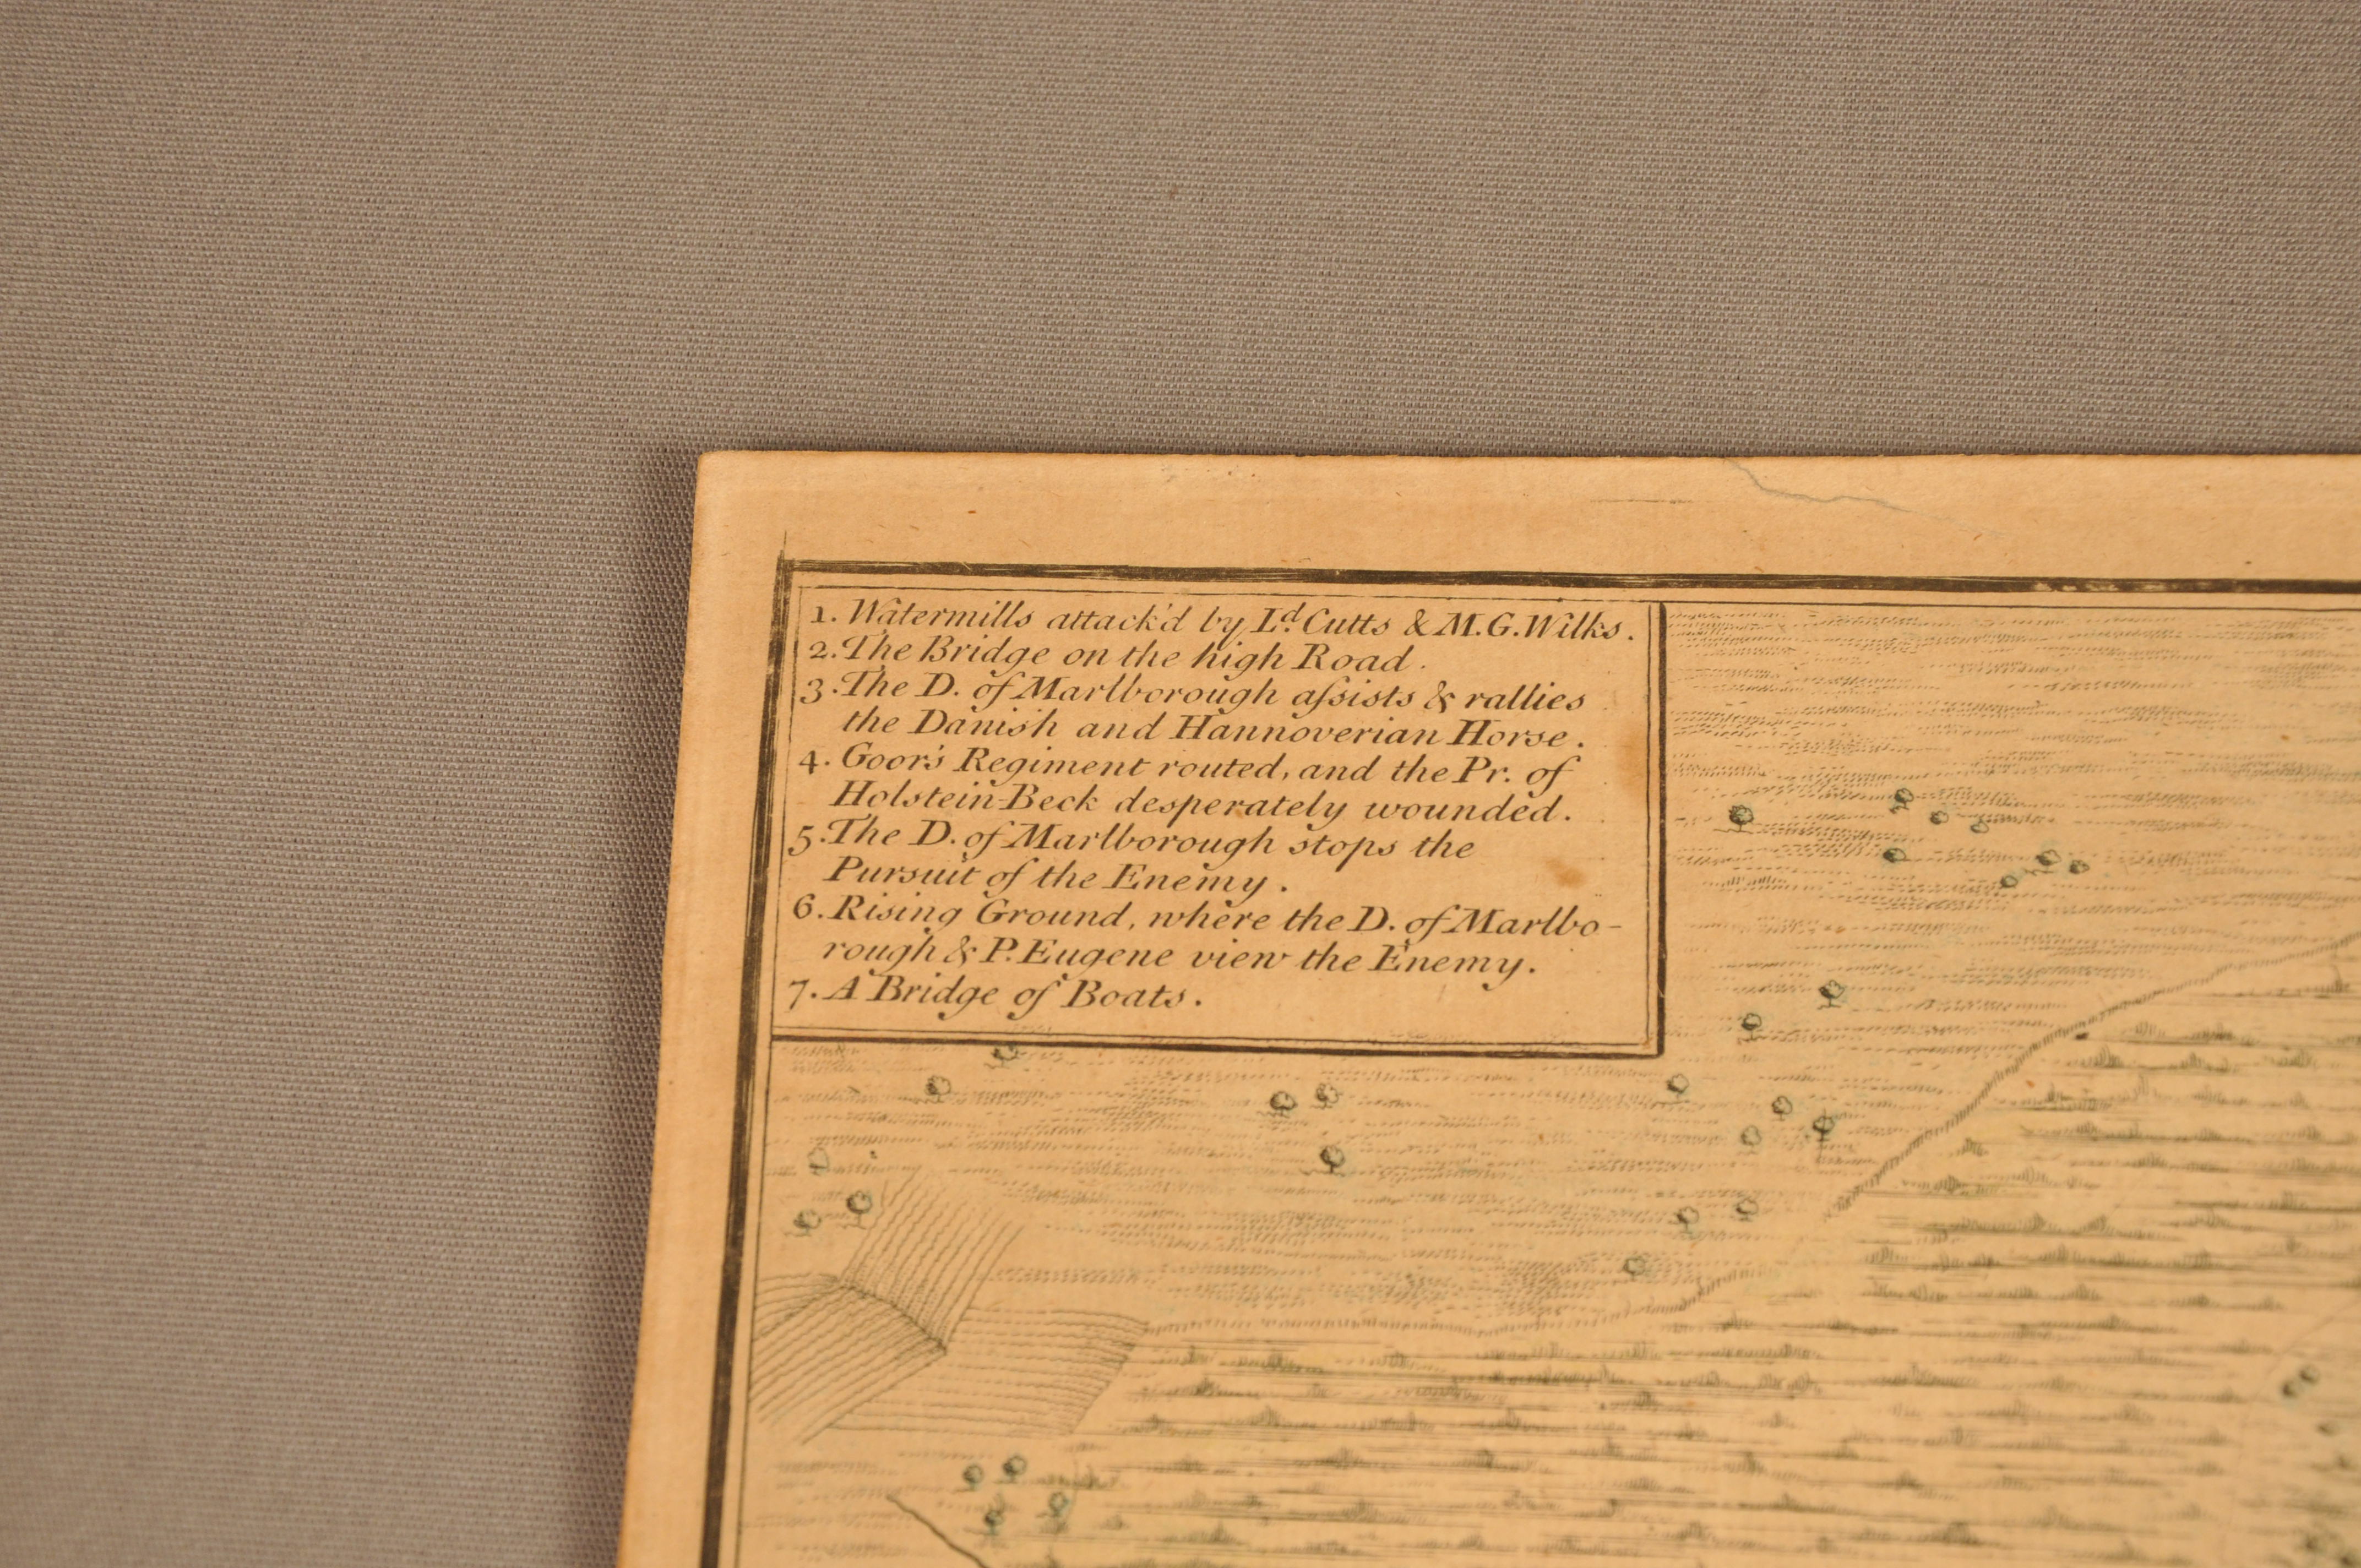 1. Watermills attack'd by Ld. Cutts & M.G. Wilks.
2. The Bridge on the high Road.
3. The D. of Marlborough aſsists & rallies
the Danish and Hannoverian Horse.
4. Goor's Regiment routed, and the Pr. of
Holstein-Beck desperately wounded.
5. The D. of Marlborough stops the
Pursuit of the Enemy.
6. Rising Ground, where the D. of Marlbo-
rough & P. Eugene view the Enemy.
7. A Bridge of Boats.